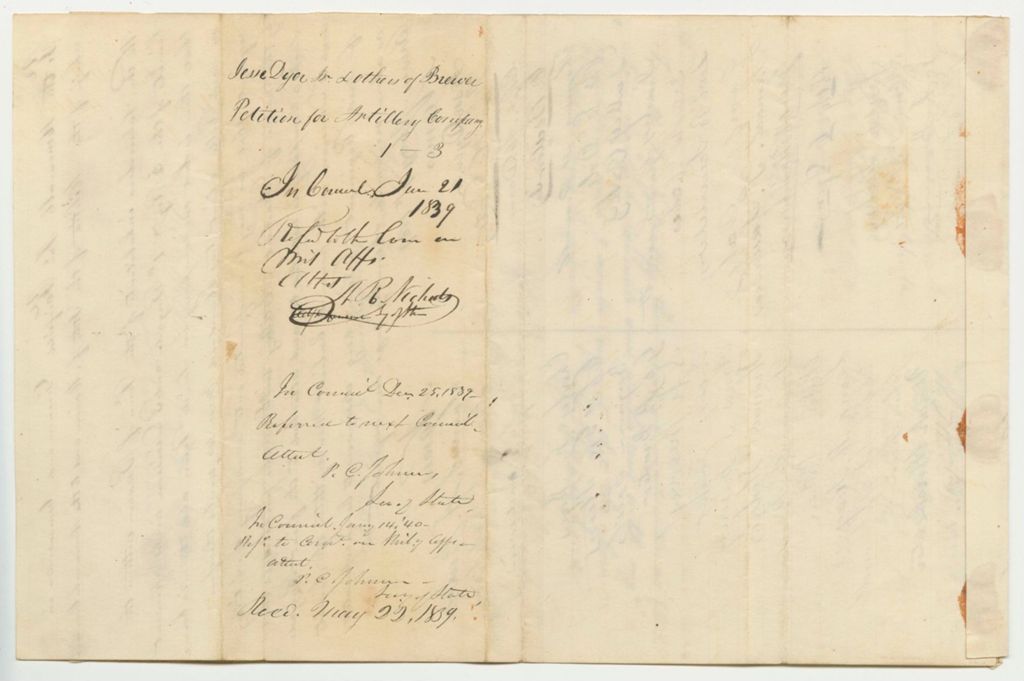 Jesse Dyer Jr. & others of Brewer
Petition for Artillery Company
1 - 3
In Council, Jun 21
1839
Refd to the Com on
Mil Affs.
Attest
A. R. Nichols
Secy of State
In Council Dec. 25, 1839
Referred to next Council.
Attest.
P. C. Johnson,
Sec. of State.
In Council Jany 14, '40-
Refd. to Comt. on Mily Affs-
attest.
P. C. Johnson-
Sec. of State.
Recd. May 22, 1839.